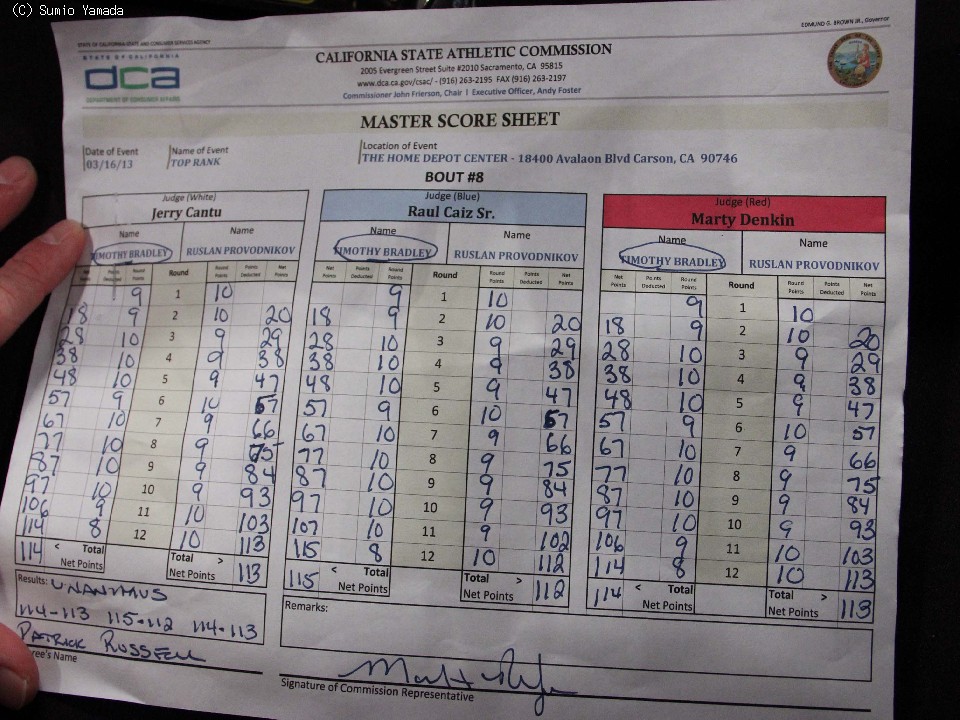 (C) Sumio Yamada
EDMUND G. BROWN JR., Governor
STATE OF CALIFORNIA STATE AND CONSUMER SERVICES AGENCY
STATE OF CALIFORNIA
dca
DEPARTMENT OF CONSUMER AFFAIRS
CALIFORNIA STATE ATHLETIC COMMISSION
2005 Evergreen Street Suite #2010 Sacramento, CA 95815
www.dca.ca.gov/csac/ - (916) 263-2195 FAX (916) 263-2197
Commissioner John Frierson, Chair | Executive Officer, Andy Foster
MASTER SCORE SHEET
Date of Event Name of Event Location of Event
03/16/13 TOP RANK THE HOME DEPOT CENTER - 18400 Avalaon Blvd Carson, CA 90746
BOUT #8
Judge (White)
Jerry Cantu
Name Name
TIMOTHY BRADLEY RUSLAN PROVODNIKOV
Net Points Points Deducted Round Points Round Round Points Points Deducted Net Points
9 1 10
18 9 2 10 20
28 10 3 9 29
38 10 4 9 38
48 10 5 9 47
57 9 6 10 57
67 10 7 9 66
77 10 8 9 75
87 10 9 9 84
97 10 10 9 93
106 9 11 10 103
114 8 12 10 113
114 < Total Net Points Total > Net Points 113
Judge (Blue)
Raul Caiz Sr.
Name Name
TIMOTHY BRADLEY RUSLAN PROVODNIKOV
Net Points Points Deducted Round Points Round Round Points Points Deducted Net Points
9 1 10
18 9 2 10 20
28 10 3 9 29
38 10 4 9 38
48 10 5 9 47
57 9 6 10 57
67 10 7 9 66
77 10 8 9 75
87 10 9 9 84
97 10 10 9 93
107 10 11 9 102
115 8 12 10 112
115 < Total Net Points Total > Net Points 112
Judge (Red)
Marty Denkin
Name Name
TIMOTHY BRADLEY RUSLAN PROVODNIKOV
Net Points Points Deducted Round Points Round Round Points Points Deducted Net Points
9 1 10
18 9 2 10 20
28 10 3 9 29
38 10 4 9 38
48 10 5 9 47
57 9 6 10 57
67 10 7 9 66
77 10 8 9 75
87 10 9 9 84
97 10 10 9 93
106 9 11 10 103
114 8 12 10 113
114 < Total Net Points Total > Net Points 113
Results: UNANIMUS
114-113 115-112 114-113
PATRICK RUSSELL
ree's Name
Remarks:
Signature of Commission Representative